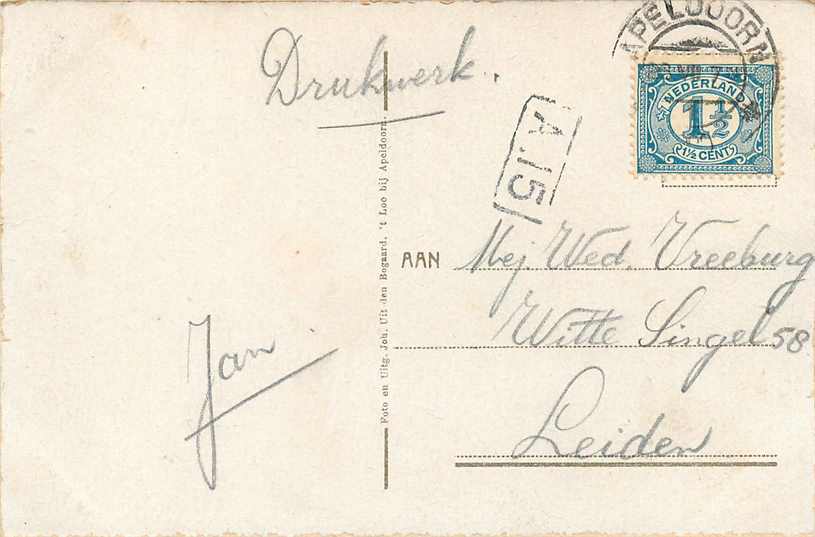 Drukwerk.
Jan
Foto en Uitg. Joh. Uit den Bogaard, 't Loo bij Apeldoorn
APELDOORN
NEDERLAND
1½
1½ CENT
A.15
AAN Mej. Wed. Vreeburg
Witte Singel 58
Leiden